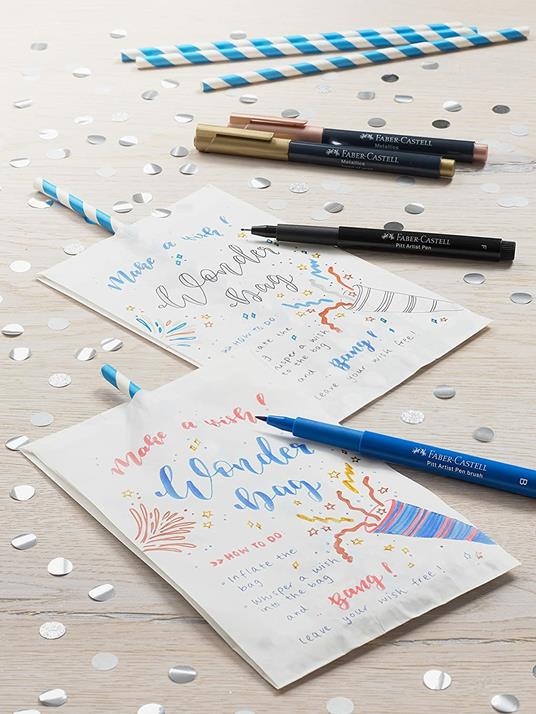 FABER-CASTELL
Metallics
FABER-CASTELL
Metallics
FABER-CASTELL
Pitt Artist Pen
F
Make a wish!
Wonder
bag
>> HOW TO DO
ate the
isper a wish
to the bag
and Bang!
leave your wish free!
FABER-CASTELL
Pitt Artist Pen brush
B
Make a wish!
Wonder
bag
>> HOW TO DO
· Inflate the
bag
· Whisper a wish
into the bag
and Bang!
leave your wish free!